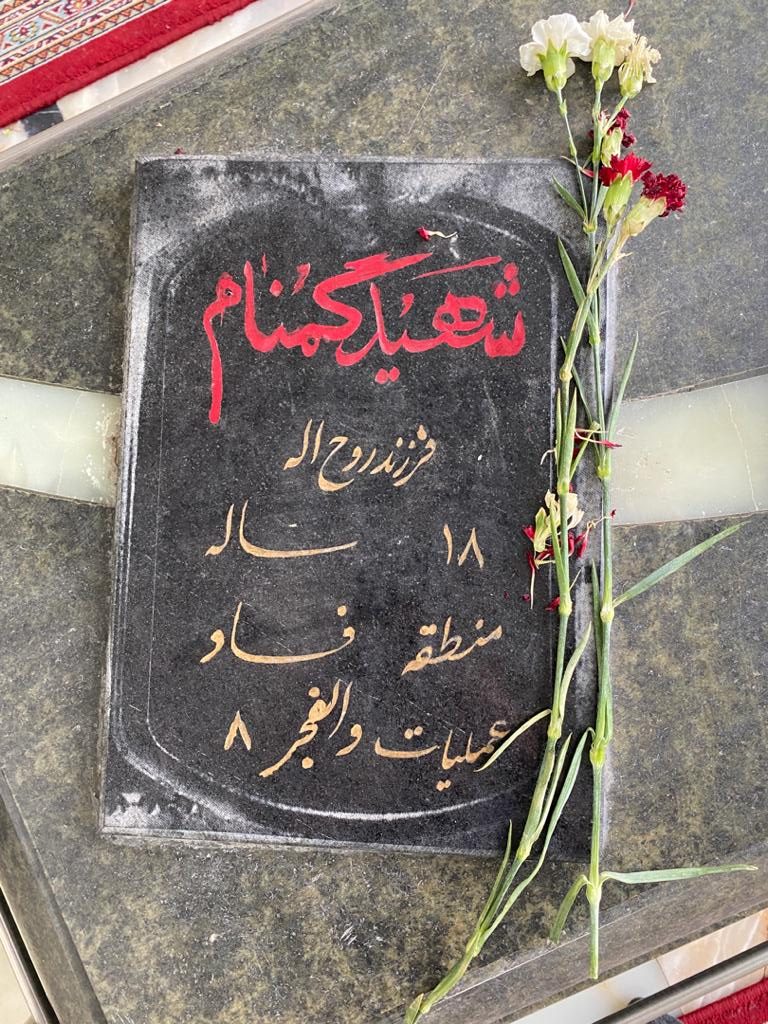 شهید گمنام
فرزند روح اله
۱۸ ساله
منطقه فاو
عملیات والفجر ۸